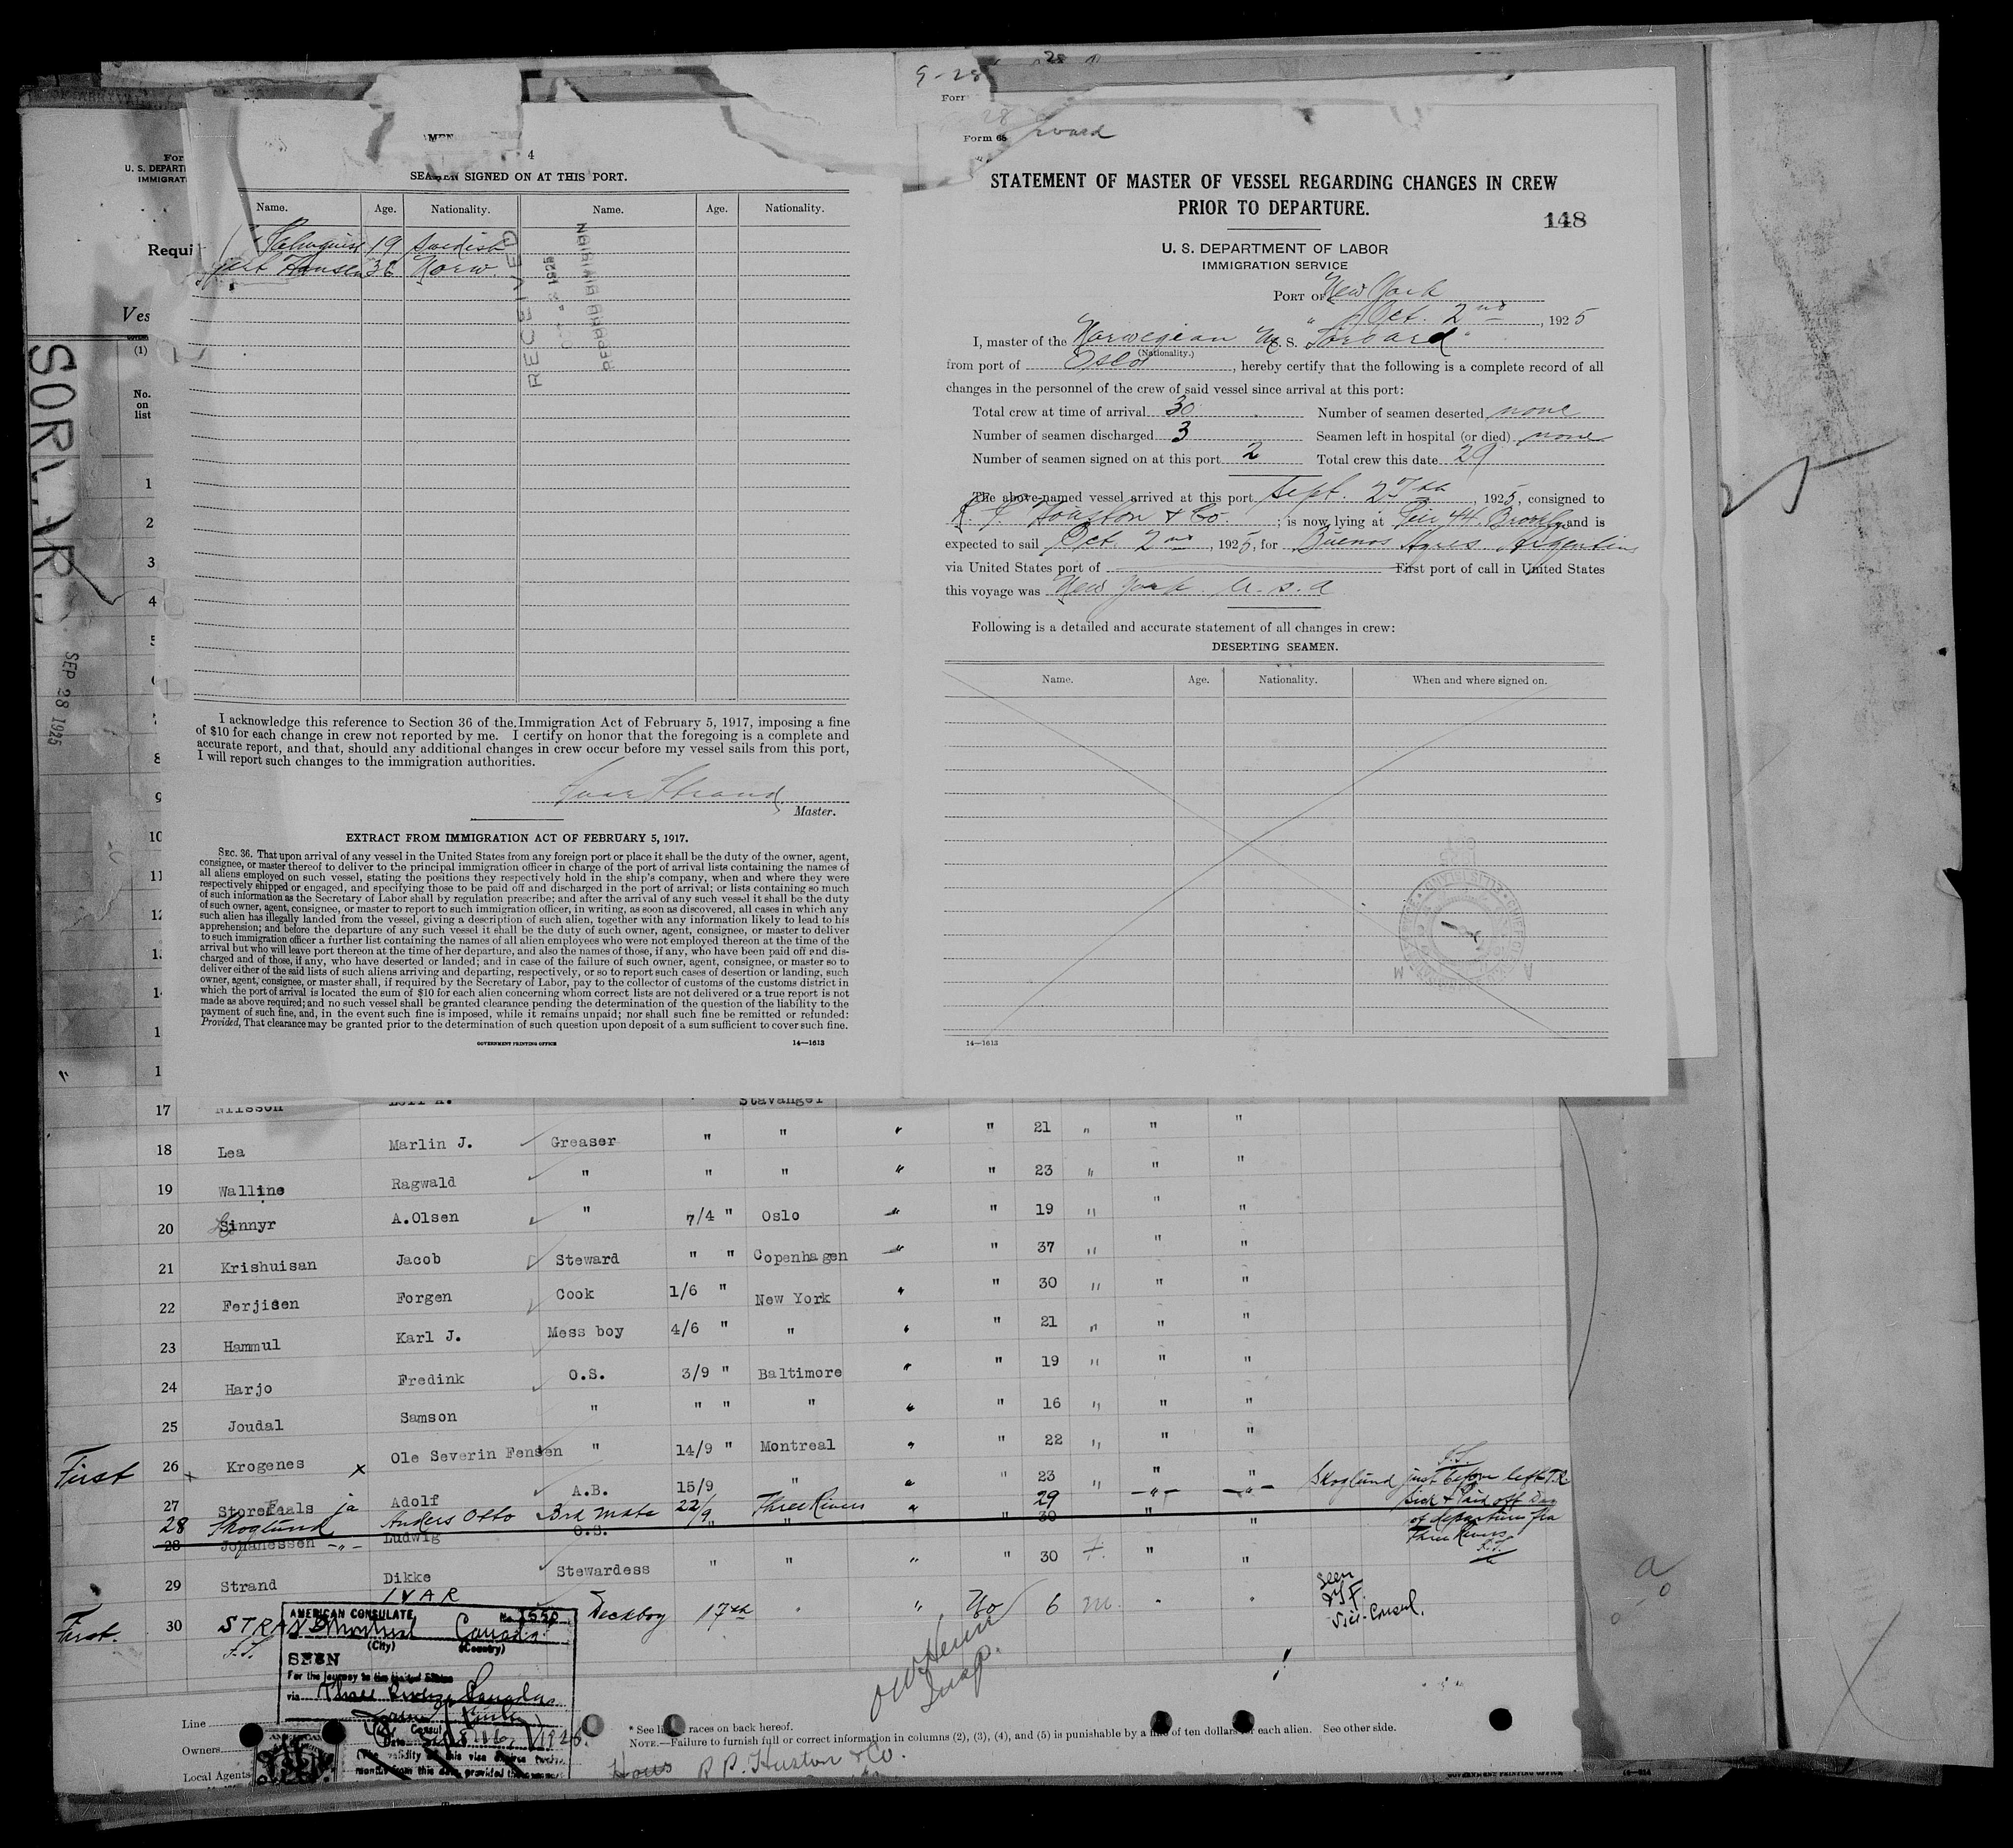 SEAMEN SIGNED ON AT THIS PORT.
4
Name. Age. Nationality. Name. Age. Nationality.
19 Swedish
Hansen 36 Norw.
RECEIVED
I acknowledge this reference to Section 36 of the Immigration Act of February 5, 1917, imposing a fine
of $10 for each change in crew not reported by me. I certify on honor that the foregoing is a complete and
accurate report, and that, should any additional changes in crew occur before my vessel sails from this port,
I will report such changes to the immigration authorities.
Ivar Strand
Master.
EXTRACT FROM IMMIGRATION ACT OF FEBRUARY 5, 1917.
SEC. 36. That upon arrival of any vessel in the United States from any foreign port or place it shall be the duty of the owner, agent,
consignee, or master thereof to deliver to the principal immigration officer in charge of the port of arrival lists containing the names of
all aliens employed on such vessel, stating the positions they respectively hold in the ship's company, when and where they were
respectively shipped or engaged, and specifying those to be paid off and discharged in the port of arrival; or lists containing so much
of such information as the Secretary of Labor shall by regulation prescribe; and after the arrival of any such vessel it shall be the duty
of such owner, agent, consignee, or master to report to such immigration officer, in writing, as soon as discovered, all cases in which any
such alien has illegally landed from the vessel, giving a description of such alien, together with any information likely to lead to his
apprehension; and before the departure of any such vessel it shall be the duty of such owner, agent, consignee, or master to deliver
to such immigration officer a further list containing the names of all alien employees who were not employed thereon at the time of the
arrival but who will leave port thereon at the time of her departure, and also the names of those, if any, who have been paid off and dis-
charged and of those, if any, who have deserted or landed; and in case of the failure of such owner, agent, consignee, or master so to
deliver either of the said lists of such aliens arriving and departing, respectively, or so to report such cases of desertion or landing, such
owner, agent, consignee, or master shall, if required by the Secretary of Labor, pay to the collector of customs of the customs district in
which the port of arrival is located the sum of $10 for each alien concerning whom correct lists are not delivered or a true report is not
made as above required; and no such vessel shall be granted clearance pending the determination of the question of the liability to the
payment of such fine, and, in the event such fine is imposed, while it remains unpaid; nor shall such fine be remitted or refunded:
Provided, That clearance may be granted prior to the determination of such question upon deposit of a sum sufficient to cover such fine.
GOVERNMENT PRINTING OFFICE 14—1613
9-28
Form
STATEMENT OF MASTER OF VESSEL REGARDING CHANGES IN CREW
PRIOR TO DEPARTURE.
148
U. S. DEPARTMENT OF LABOR
IMMIGRATION SERVICE
PORT OF New York
Oct. 2nd, 1925
I, master of the Norwegian M. S. "Sorvard"
(Nationality.)
from port of Oslo, hereby certify that the following is a complete record of all
changes in the personnel of the crew of said vessel since arrival at this port:
Total crew at time of arrival 30 Number of seamen deserted none
Number of seamen discharged 3 Seamen left in hospital (or died) none
Number of seamen signed on at this port 2 Total crew this date 29
The above-named vessel arrived at this port Sept. 27th, 1925, consigned to
R. P. Houston & Co.; is now lying at Pier 44 Brooklyn and is
expected to sail Oct. 2nd, 1925, for Buenos Ayres Argentina
via United States port of First port of call in United States
this voyage was New York U.S.A
Following is a detailed and accurate statement of all changes in crew:
DESERTING SEAMEN.
Name. Age. Nationality. When and where signed on.
14—1613
For
U. S. DEPART
IMMIGRAT
Requi
Ves
(1)
No.
on
list
SEP 28 1925
1
2
3
4
5
8
9
10
11
17 Nilsson Stavanger
18 Lea Marlin J. Greaser " " " " 21 " " "
19 Walline Ragwald " " " " " 23 " " "
20 Sinnyr A.Olsen " 7/4 " Oslo " " 19 " " "
21 Krishuisan Jacob Steward " " Copenhagen " " 37 " " "
22 Ferjisen Forgen Cook 1/6 " New York " " 30 " " "
23 Hammul Karl J. Mess boy 4/6 " " " " 21 " " "
24 Harjo Fredink O.S. 3/9 " Baltimore " " 19 " " "
25 Joudal Samson " " " " " " 16 " " "
First 26 Krogenes x Ole Severin Fensen " 14/9 " Montreal " " 22 " " "
27 Adolf A.B. 15/9 " " " 23 " " "
28 Skoglund Anders Otto 3rd Mate 22/9 Three Rivers " 29
Skoglund just before left T.R.
Sick & Paid off Day
of departure fra
Three Rivers
28 Johanessen Ludwig O.S. " " " 30 " "
29 Strand Dikke Stewardess " " " " 30 f. " "
First. 30 STRAND IVAR Deckboy 17th " " No 6 m. " "
Seen
Vice-Consul.
AMERICAN CONSULATE No. 1550
Montreal Canada
(City) (Country)
SEEN
For the journey to the United States
via Three Rivers Canada
Consul
Insp.
Line
Owners
Local Agents
* See li races on back hereof.
NOTE.—Failure to furnish full or correct information in columns (2), (3), (4), and (5) is punishable by a fine of ten dollars for each alien. See other side.
R P. Huston & Co.
GOVERNMENT PRINTING OFFICE